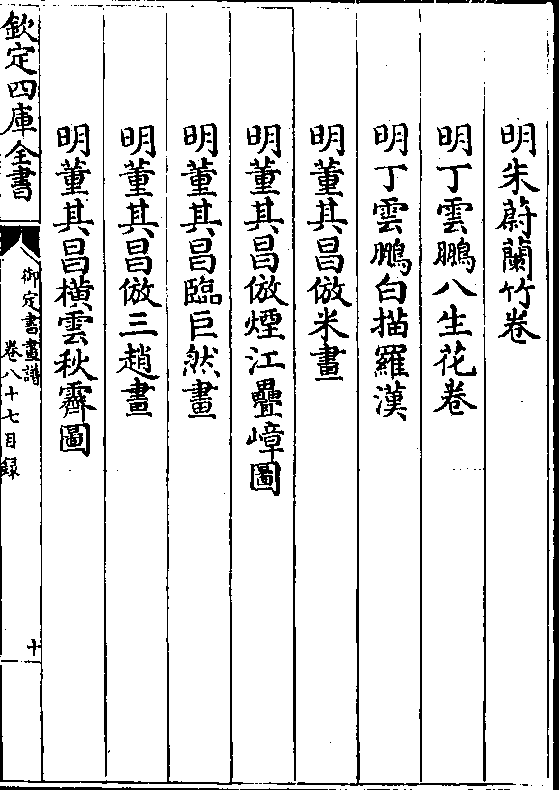 明朱蔚蘭竹卷
明丁雲鵬八生花卷
明丁雲鵬白描羅漢
明董其昌倣米畫
明董其昌倣煙江疊嶂圖
明董其昌臨巨然畫
明董其昌倣三趙畫
明董其昌橫雲秋霽圖
欽定四庫全書
御定書畫譜
卷八十七目録
十